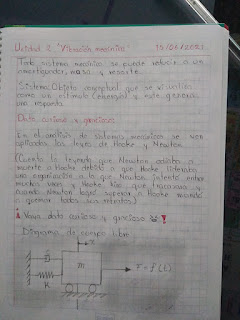 Unidad 2 "Vibración mecánica" 15/06/2021
Todo sistema mecánico se puede reducir a un
amortiguador, masa y resorte.
Sistema: Objeto conceptual que se ve
como un estímulo (energía) y este genera
una respuesta.
Dato curioso y gracioso
En el análisis de sistemas mecánicos se ven
aplicados las leyes de Hooke y Newton.
(Cuenta la leyenda que Newton odiaba a
muerte a Hooke debido a que Hooke
una organización a la que Newton intentó entrar
muchas veces y Hooke hizo que fracasara y
cuando Newton logró superar a Hooke mandó
a quemar todos sus retratos)
Vaya dato curioso y gracioso !
Diagrama de cuerpo libre
x
B
K
m
T = f(t)